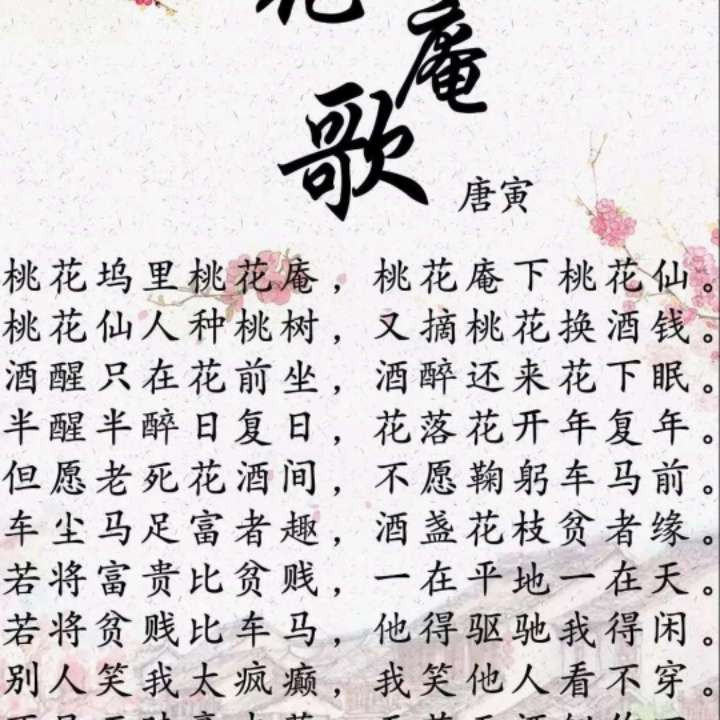 花
庵
歌
唐寅
桃花坞里桃花庵，桃花庵下桃花仙。
桃花仙人种桃树，又摘桃花换酒钱。
酒醒只在花前坐，酒醉还来花下眠。
半醒半醉日复日，花落花开年复年。
但愿老死花酒间，不愿鞠躬车马前。
车尘马足富者趣，酒盏花枝贫者缘。
若将富贵比贫贱，一在平地一在天。
若将贫贱比车马，他得驱驰我得闲。
别人笑我太疯癫，我笑他人看不穿。